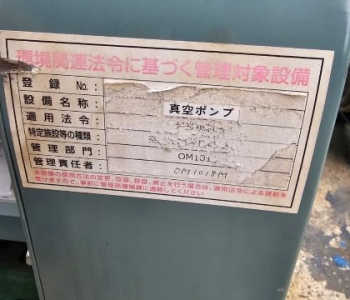 環境関連法令に基づく管理対象設備
登録No.:
設備名称: 真空ポンプ
適用法令:
特定施設等の種類:
管理部門: OM101
管理責任者: OM1018M
本設備の使用方法の変更、改造、移設、廃止を行う場合は、適用法令による規制を
受けますので、事前に管理部環境課に連絡してください